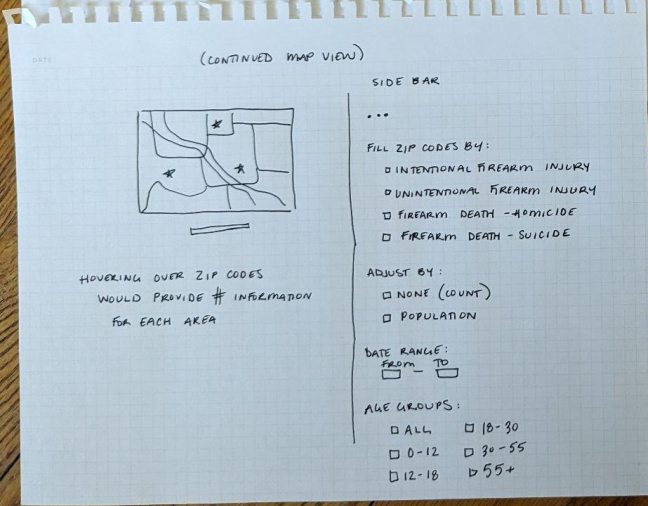 DATE
(CONTINUED MAP VIEW)
HOVERING OVER ZIP CODES
WOULD PROVIDE # INFORMATION
FOR EACH AREA
SIDE BAR
...
FILL ZIP CODES BY:
INTENTIONAL FIREARM INJURY
UNINTENTIONAL FIREARM INJURY
FIREARM DEATH - HOMICIDE
FIREARM DEATH - SUICIDE
ADJUST BY:
NONE (COUNT)
POPULATION
DATE RANGE:
FROM TO
-
AGE GROUPS:
ALL 18-30
0-12 30-55
12-18 55+